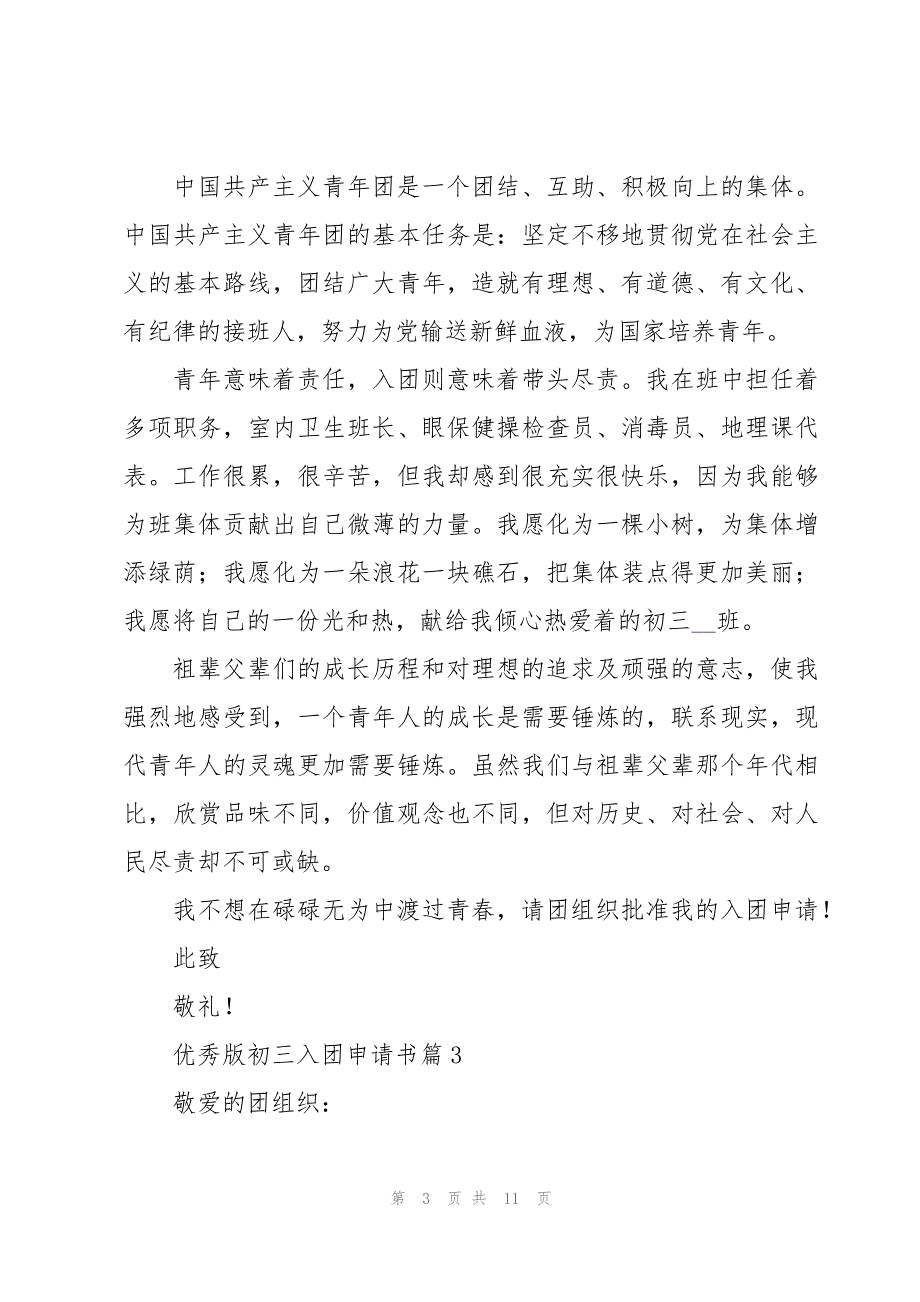 中国共产主义青年团是一个团结、互助、积极向上的集体。
中国共产主义青年团的基本任务是：坚定不移地贯彻党在社会主
义的基本路线，团结广大青年，造就有理想、有道德、有文化、
有纪律的接班人，努力为党输送新鲜血液，为国家培养青年。
青年意味着责任，入团则意味着带头尽责。我在班中担任着
多项职务，室内卫生班长、眼保健操检查员、消毒员、地理课代
表。工作很累，很辛苦，但我却感到很充实很快乐，因为我能够
为班集体贡献出自己微薄的力量。我愿化为一棵小树，为集体增
添绿荫；我愿化为一朵浪花一块礁石，把集体装点得更加美丽；
我愿将自己的一份光和热，献给我倾心热爱着的初三__班。
祖辈父辈们的成长历程和对理想的追求及顽强的意志，使我
强烈地感受到，一个青年人的成长是需要锤炼的，联系现实，现
代青年人的灵魂更加需要锤炼。虽然我们与祖辈父辈那个年代相
比，欣赏品味不同，价值观念也不同，但对历史、对社会、对人
民尽责却不可或缺。
我不想在碌碌无为中渡过青春，请团组织批准我的入团申请！
此致
敬礼！
优秀版初三入团申请书篇3
敬爱的团组织：
第 3 页 共 11 页